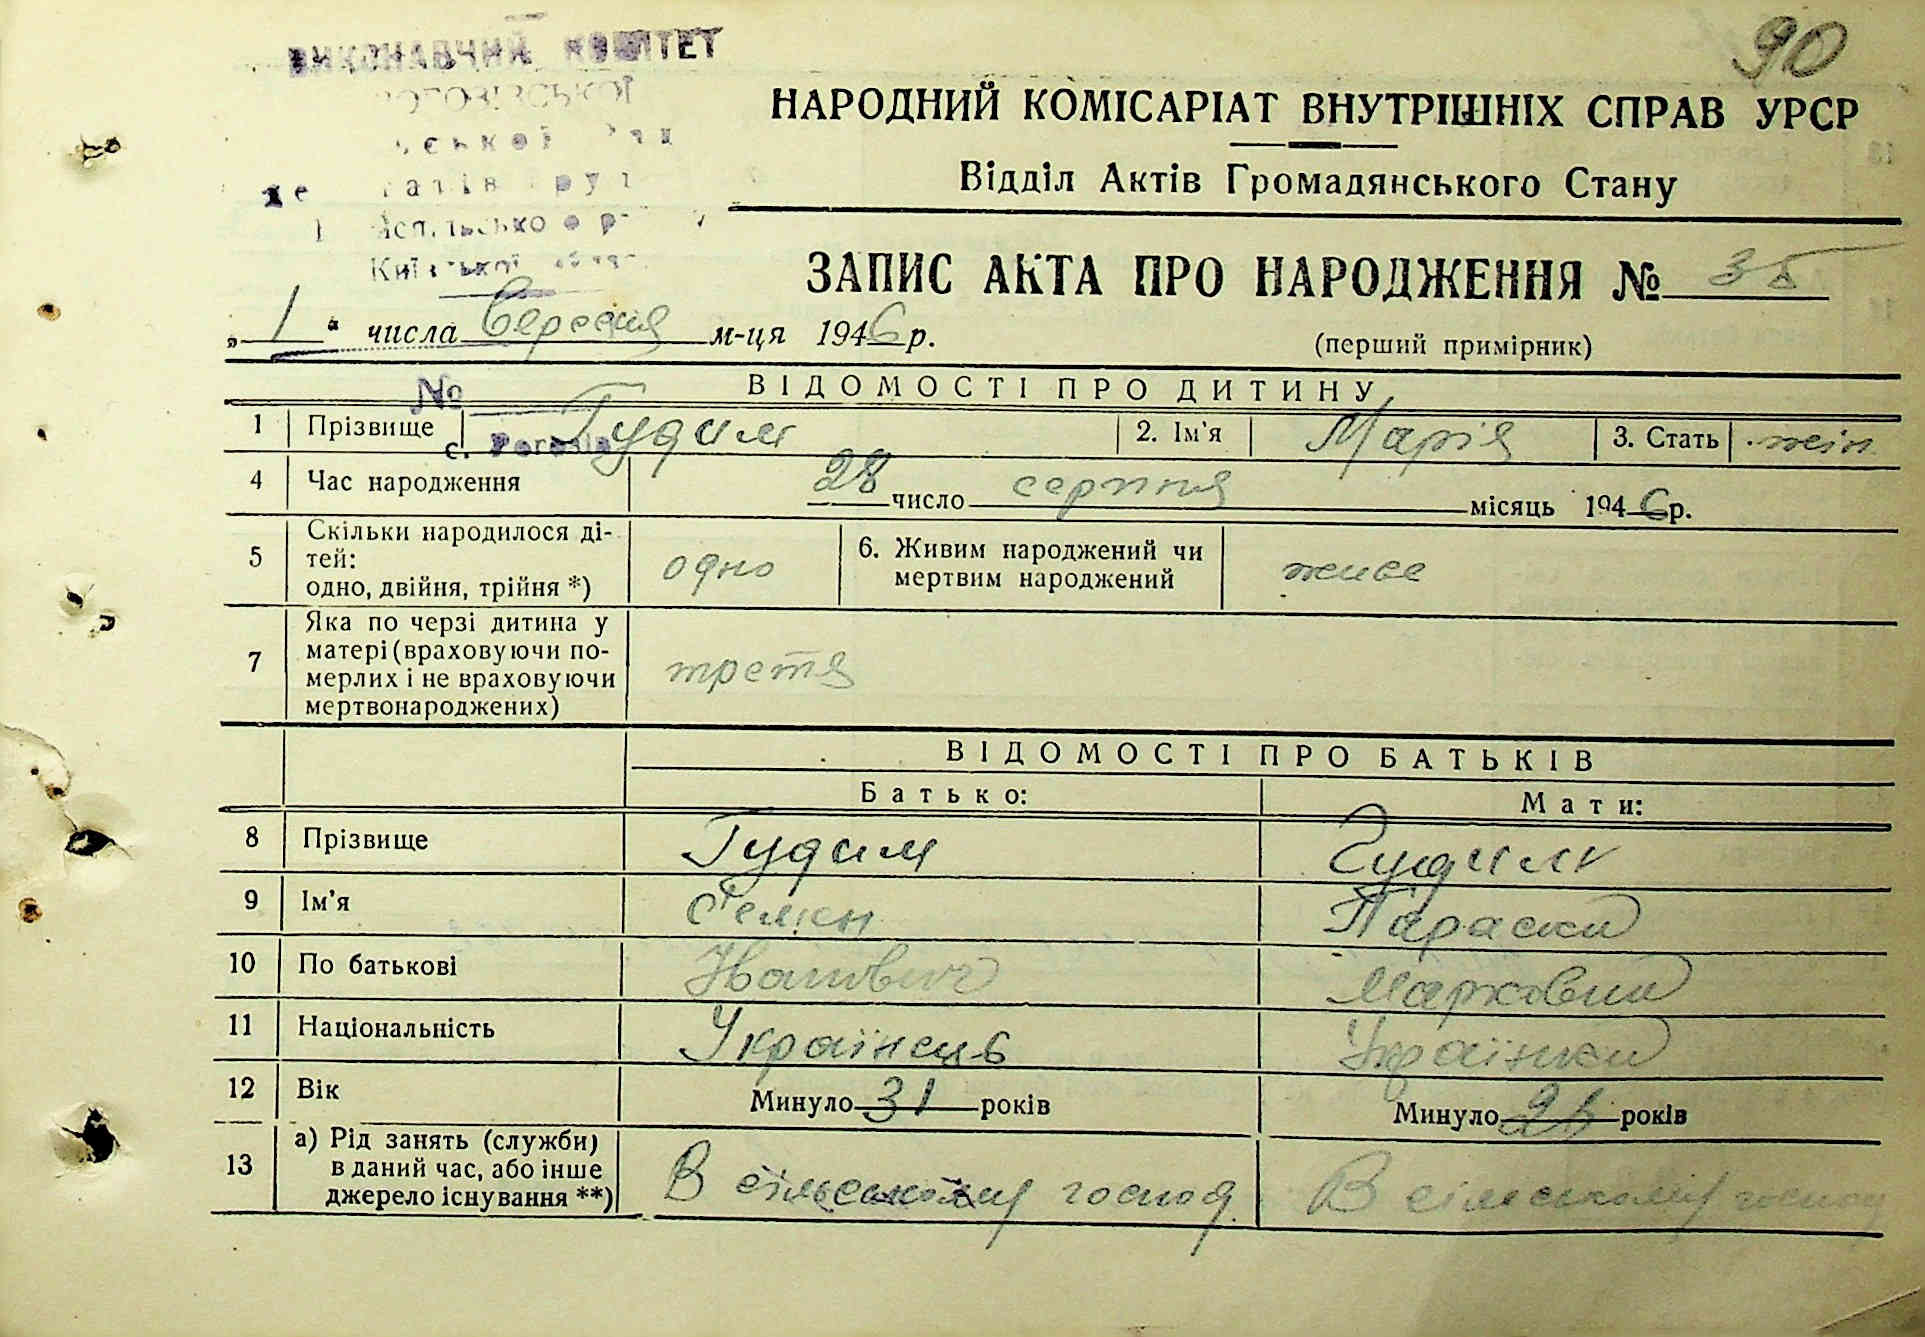 90
ВИКОНАВЧИЙ КОМІТЕТ
Київської
НАРОДНИЙ КОМІСАРІАТ ВНУТРІШНІХ СПРАВ УРСР
Відділ Актів Громадянського Стану
ЗАПИС АКТА ПРО НАРОДЖЕННЯ № 35
„1“ числа Вересня м-ця 1946 р.
(перший примірник)
№
ВІДОМОСТІ ПРО ДИТИНУ
1 Прізвище Гудим 2. Ім'я Марія 3. Стать жін.
с.
4 Час народження 28 число серпня місяць 1946 р.
5 Скільки народилося ді-
тей:
одно, двійня, трійня *) одно 6. Живим народжений чи
мертвим народжений живе
7 Яка по черзі дитина у
матері (враховуючи по-
мерлих і не враховуючи
мертвонароджених) третя
ВІДОМОСТІ ПРО БАТЬКІВ
Батько: Мати:
8 Прізвище Гудим Гудим
9 Ім'я Семен Параска
10 По батькові Іванович Марковна
11 Національність Українець Українка
12 Вік Минуло 31 років Минуло 26 років
13 а) Рід занять (служби)
в даний час, або інше
джерело існування **) В сільському господ. В сільському господ